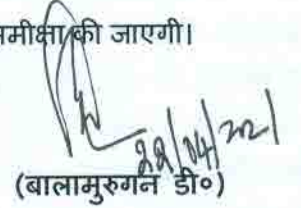 समीक्षा की जाएगी।
22/04/2021
(बालामुरुगन डी०)